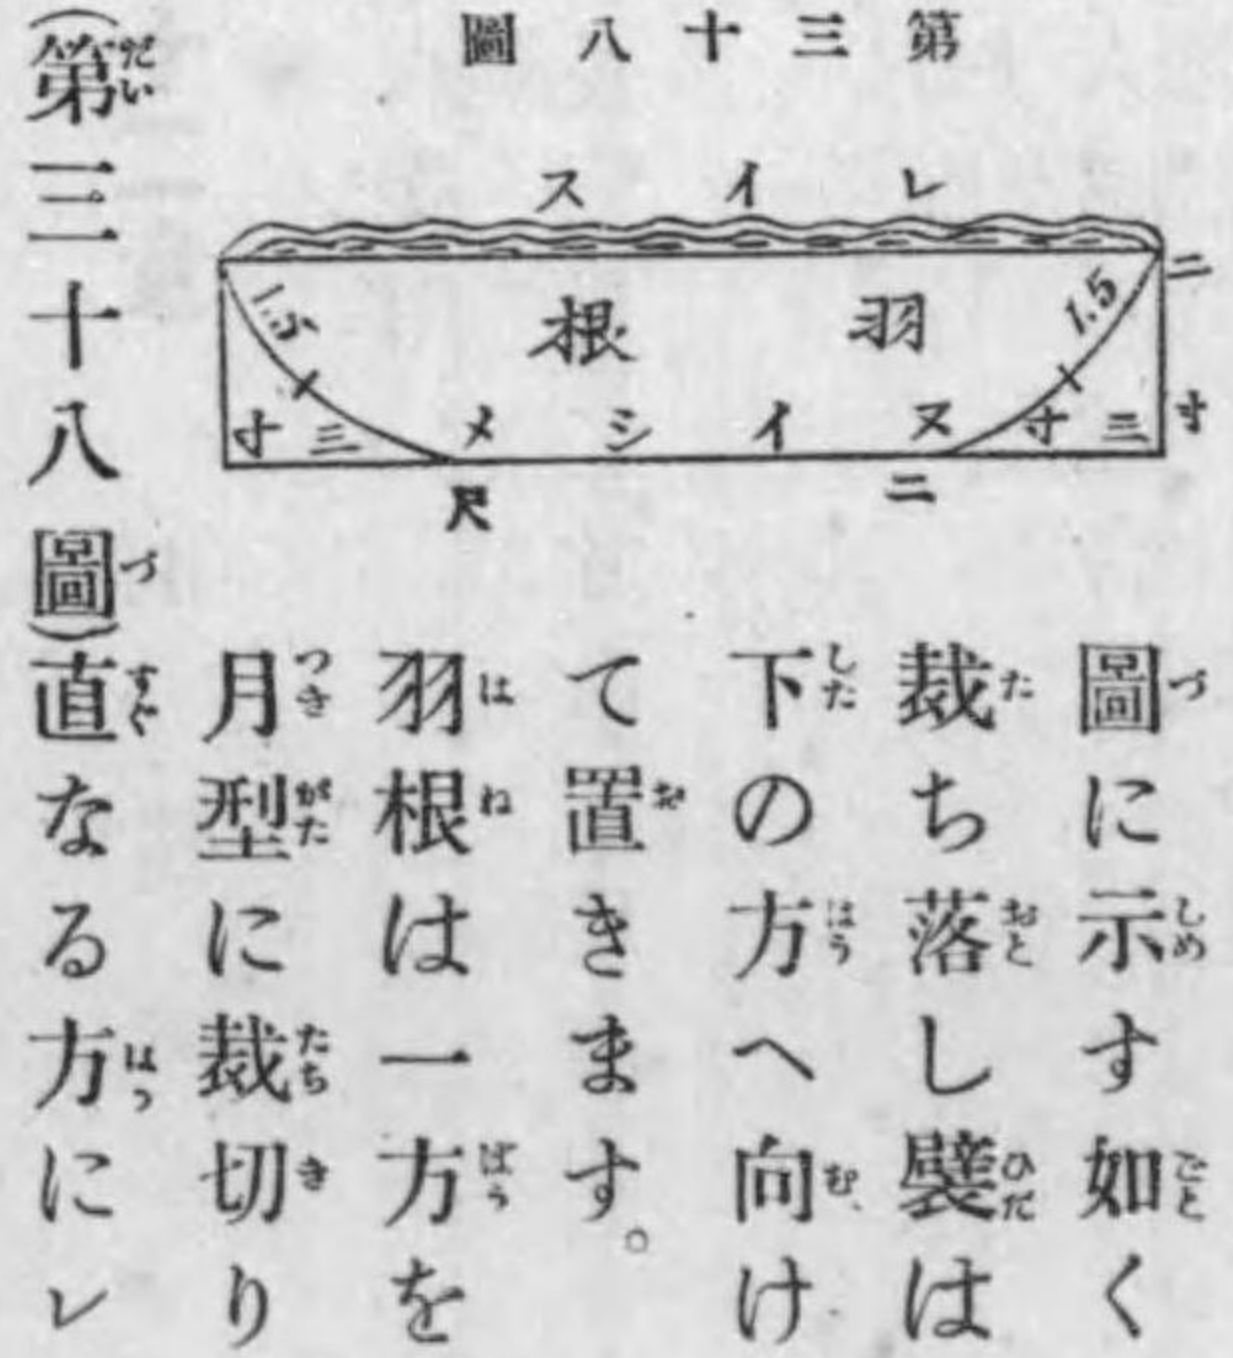 第三十八圖
レイス
羽根
1.5
1.5
二寸
三寸
ヌイシメ
三寸
二尺
圖に示す如く
裁ち落し襞は
下の方へ向け
て置きます。
羽根は一方を
月型に裁切り
(第三十八圖)直なる方にレ